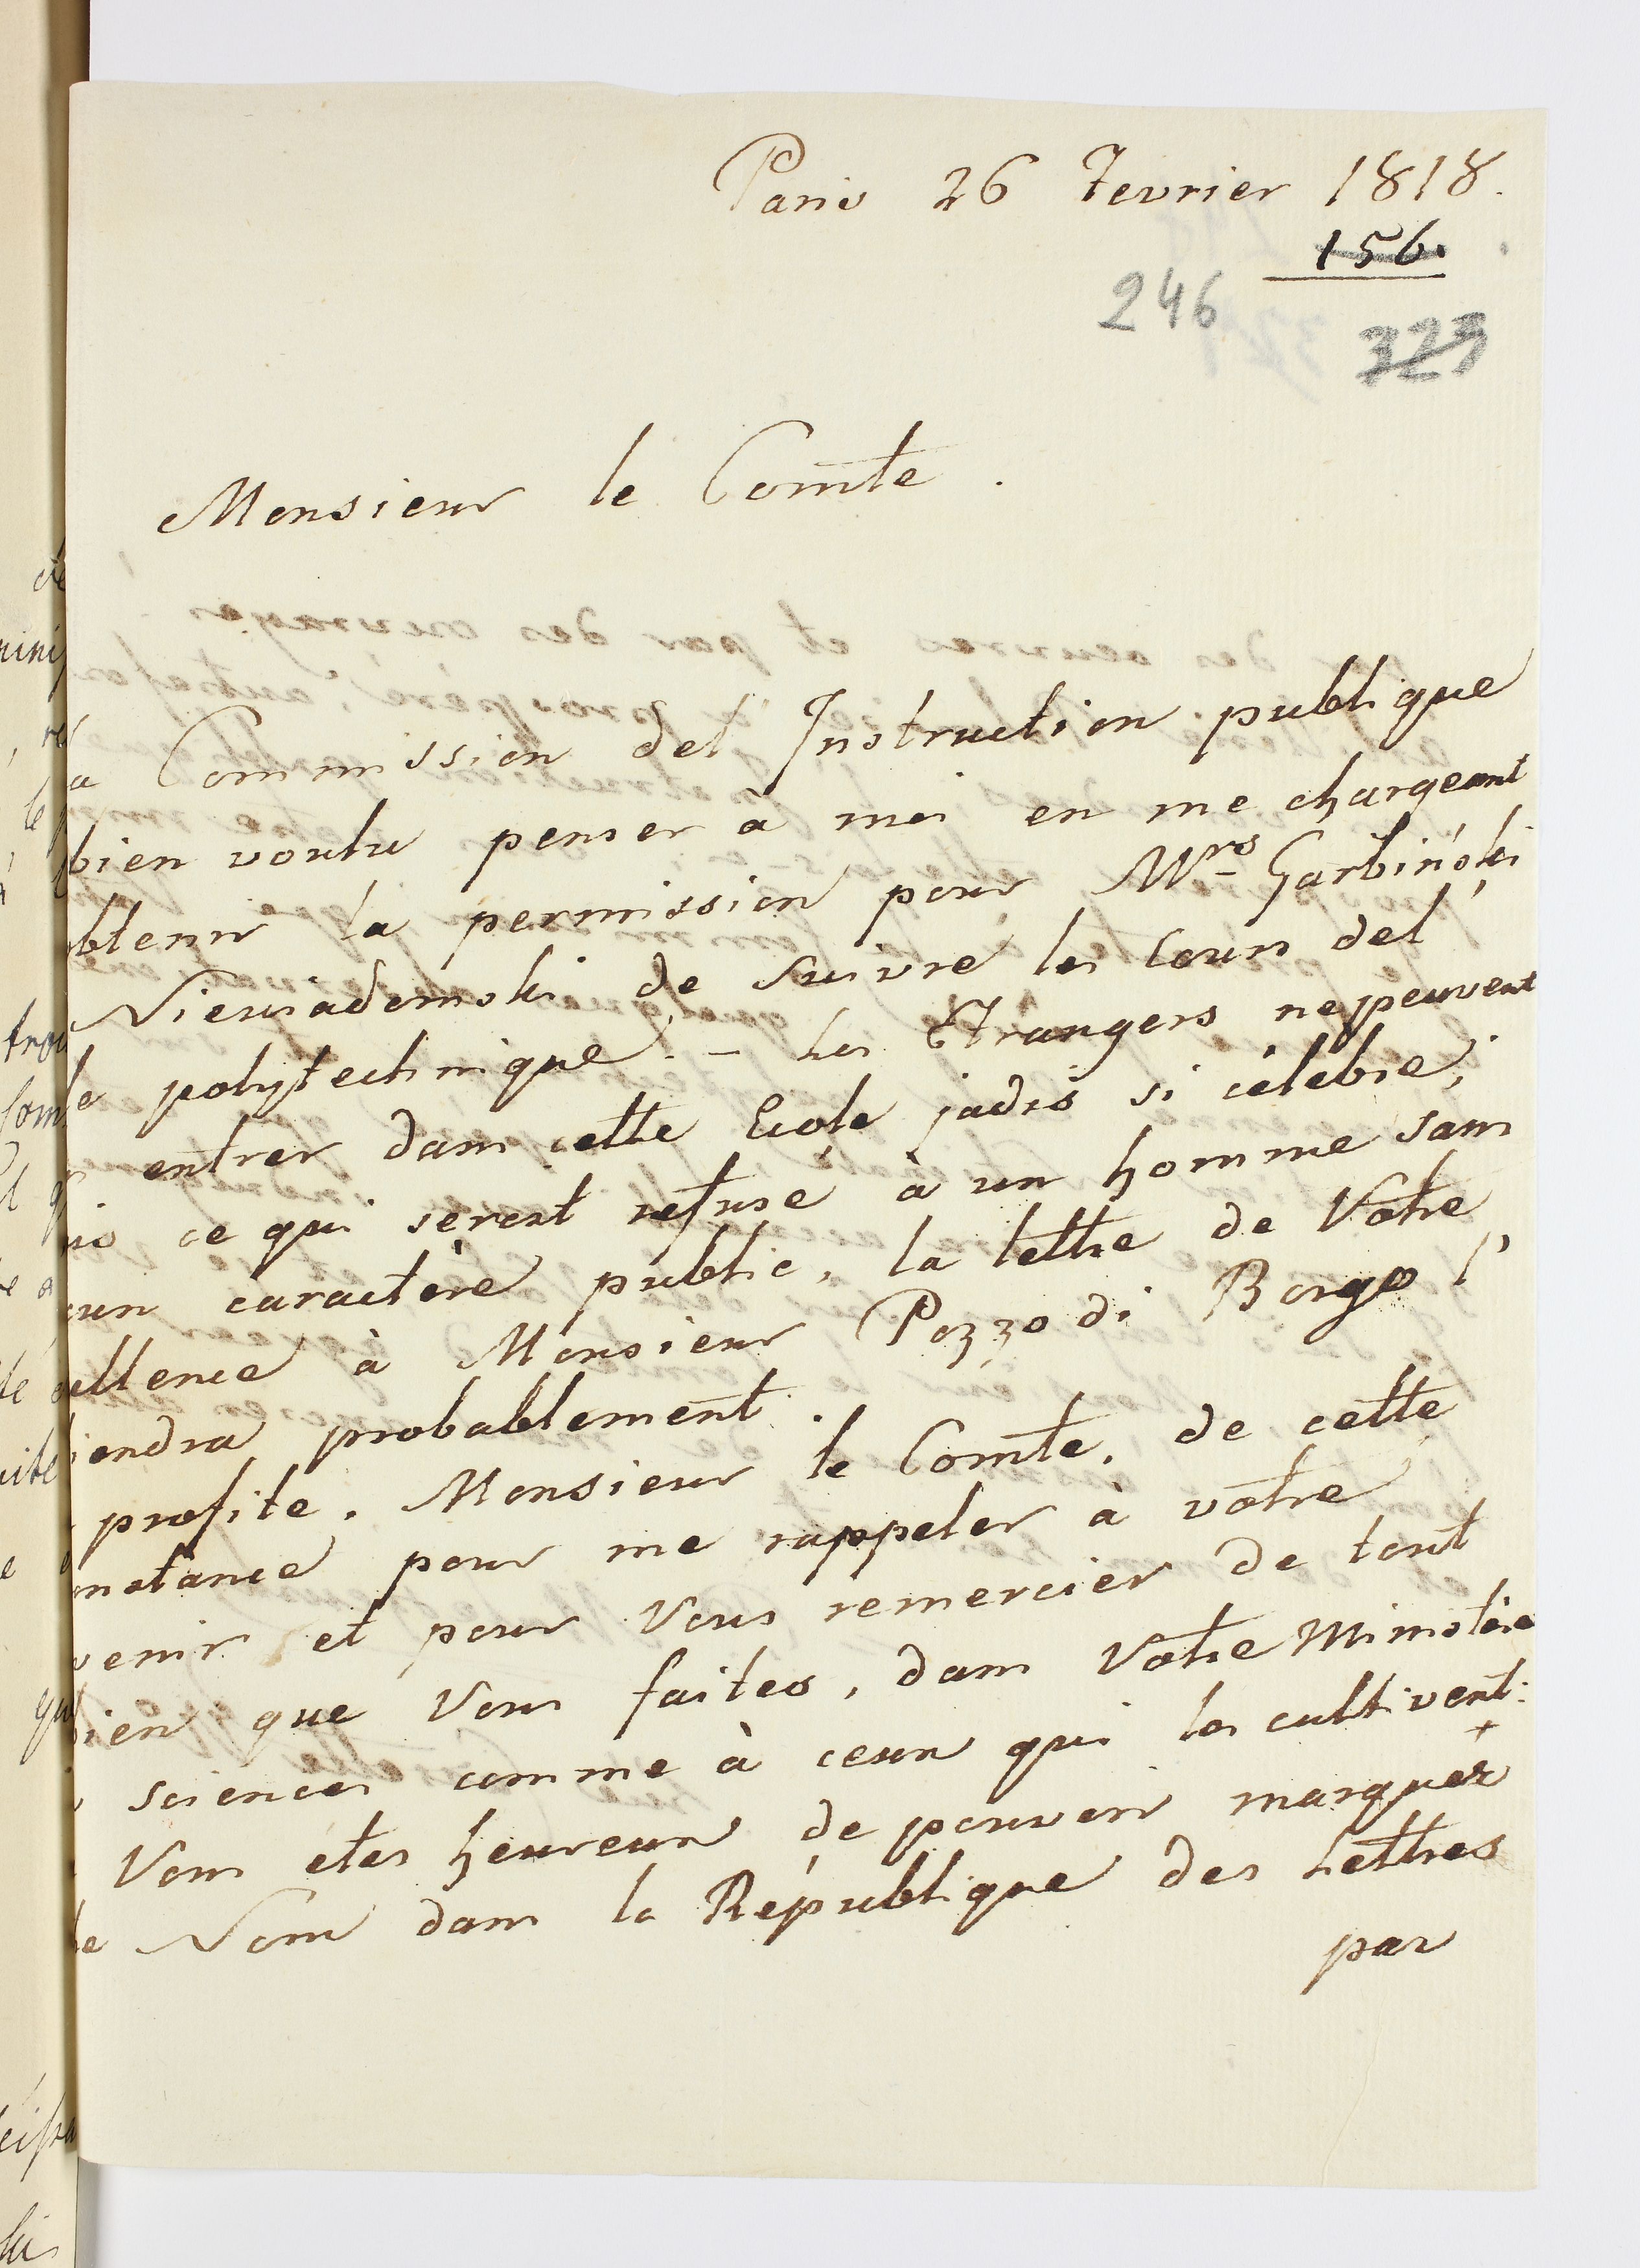 Paris 26 Fevrier 1818.
156.
246
323
Monsieur le Comte.
a Commission del Instruction publique
bien voulu penser à moi en me chargeant
btenir la permission pour Mrs Garbiński
Niewiadomski de suivre les Cours del'
le polytechnique. - Les Etrangers ne peuvent
entrer dans cette Ecole jadis si célébre;
is ce qui seroit refusé à un homme sans
cun caractère public, la lettre de Votre
cellence à Monsieur Pozzo di Borgo l'
iendra probablement.
profite, Monsieur le Comte, de cette
nstance pour me rappeler à votre
venir et pour Vous remercier de tout
bien que Vous faites, dans Votre Ministère
sciences comme à ceux qui les cultivent:
Vous etes heureux de pouvoir marquer
le Nom dans la République des Lettres
par